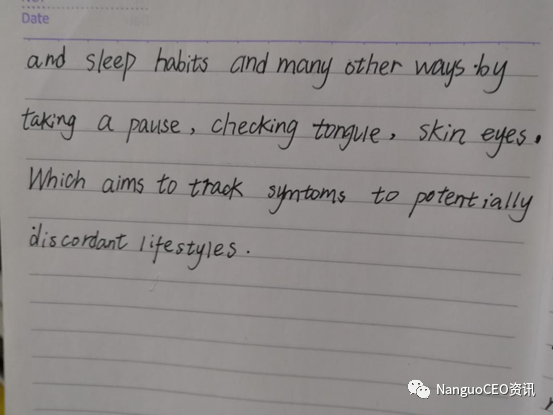 Date
and sleep habits and many other ways by
taking a pause, checking tongue, skin eyes.
Which aims to track symtoms to potentially
discordant lifestyles.
NanguoCEO资讯